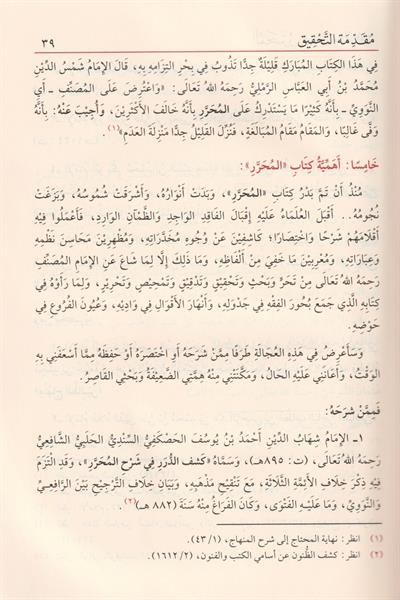 مُقَدِّمَة التَّحْقِيق
٣٩
فِي هَذَا الكِتَابِ المُبَارَكِ قَلِيلَةٌ جِدًّا تَذُوبُ فِي بَحْرِ التِزَامِهِ بِهِ، قَالَ الإِمَامُ شَمْسُ الدِّيْنِ
مُحَمَّدُ بْنُ أَبِي العَبَّاسِ الرَّمْلِيُّ رَحِمَهُ اللهُ تَعَالَى: «وَاعْتُرِضَ عَلَى المُصَنِّفِ - أَيِ
النَّوَوِيِّ - بِأَنَّهُ كَثِيْرًا مَا يَسْتَدْرِكُ عَلَى المُحَرَّرِ بِأَنَّهُ خَالَفَ الأَكْثَرِيْنَ، وَأُجِيْبَ عَنْهُ: بِأَنَّهُ
وَفَّى غَالِبًا، وَالمَقَامُ مَقَامُ المُبَالَغَةِ، فَنُزِّلَ القَلِيْلُ جِدًّا مَنْزِلَةَ العَدَمِ»(١).
خَامِسًا: أَهَمِّيَّةُ كِتَابِ «المُحَرَّرِ»:
مُنْذُ أَنْ تَمَّ بَدْرُ كِتَابِ «المُحَرَّرِ»، وَبَدَتْ أَنْوَارُهُ، وَأَشْرَقَتْ شُمُوسُهُ، وَبَزَغَتْ
نُجُومُهُ.. أَقْبَلَ العُلَمَاءُ عَلَيْهِ إِقْبَالَ الفَاقِدِ الوَاجِدِ وَالظَّمْآنِ الوَارِدِ، فَأَعْمَلُوا فِيْهِ
أَقْلَامَهُمْ شَرْحًا وَاخْتِصَارًا؛ كَاشِفِيْنَ عَنْ وُجُوهِ مُخَدَّرَاتِهِ، وَمُظْهِرِيْنَ مَحَاسِنَ نَظْمِهِ
وَعِبَارَاتِهِ، وَمُعْرِبِيْنَ مَا خَفِيَ مِنْ أَلْفَاظِهِ، وَمَا ذَلِكَ إِلَّا لِمَا شَاعَ عَنِ الإِمَامِ المُصَنِّفِ
رَحِمَهُ اللهُ تَعَالَى مِنْ تَحَرٍّ وَبَحْثٍ وَتَحْقِيْقٍ وَتَدْقِيْقٍ وَتَمْحِيْصٍ وَتَحْرِيْرٍ، وَلِمَا رَأَوْهُ فِي
كِتَابِهِ الَّذِي جَمَعَ بُحُورَ الفِقْهِ فِي جَدْوَلِهِ، وَأَنْهَارَ الأَقْوَالِ فِي وَادِيْهِ، وَعُيُونَ الفُرُوعِ فِي
حَوْضِهِ.
وَسَأَعْرِضُ فِي هَذِهِ العُجَالَةِ طَرَفًا مِمَّنْ شَرَحَهُ أَوِ اخْتَصَرَهُ أَوْ حَفِظَهُ مِمَّا أَسْعَفَنِي بِهِ
الوَقْتُ، وَأَعَانَنِي عَلَيْهِ الحَالُ، وَمَكَّنَتْنِي مِنْهُ هِمَّتِي الضَّعِيْفَةُ وَبَحْثِي القَاصِرُ.
فَمِمَّنْ شَرَحَهُ:
١- الإِمَامُ شِهَابُ الدِّيْنِ أَحْمَدُ بْنُ يُوسُفَ الحَصْكَفِيُّ السِّنْدِيُّ الحَلَبِيُّ الشَّافِعِيُّ
رَحِمَهُ اللهُ تَعَالَى، (ت: ٨٩٥هـ)، وَسَمَّاهُ «كَشْفَ الدُّرَرِ فِي شَرْحِ المُحَرَّرِ»، وَقَدِ التَزَمَ
فِيْهِ ذِكْرَ خِلَافِ الأَئِمَّةِ الثَّلَاثَةِ، مَعَ تَنْقِيْحِ مَذْهَبِهِ، وَبَيَانِ خِلَافِ التَّرْجِيْحِ بَيْنَ الرَّافِعِيِّ
وَالنَّوَوِيِّ، وَمَا عَلَيْهِ الفَتْوَى، وَكَانَ الفَرَاغُ مِنْهُ سَنَةَ (٨٨٢ هـ)(٢).
(١) انظر: نهاية المحتاج إلى شرح المنهاج، (٤٣/١).
(٢) انظر: كشف الظُّنون عن أسامي الكتب والفنون، (١٦١٢/٢).